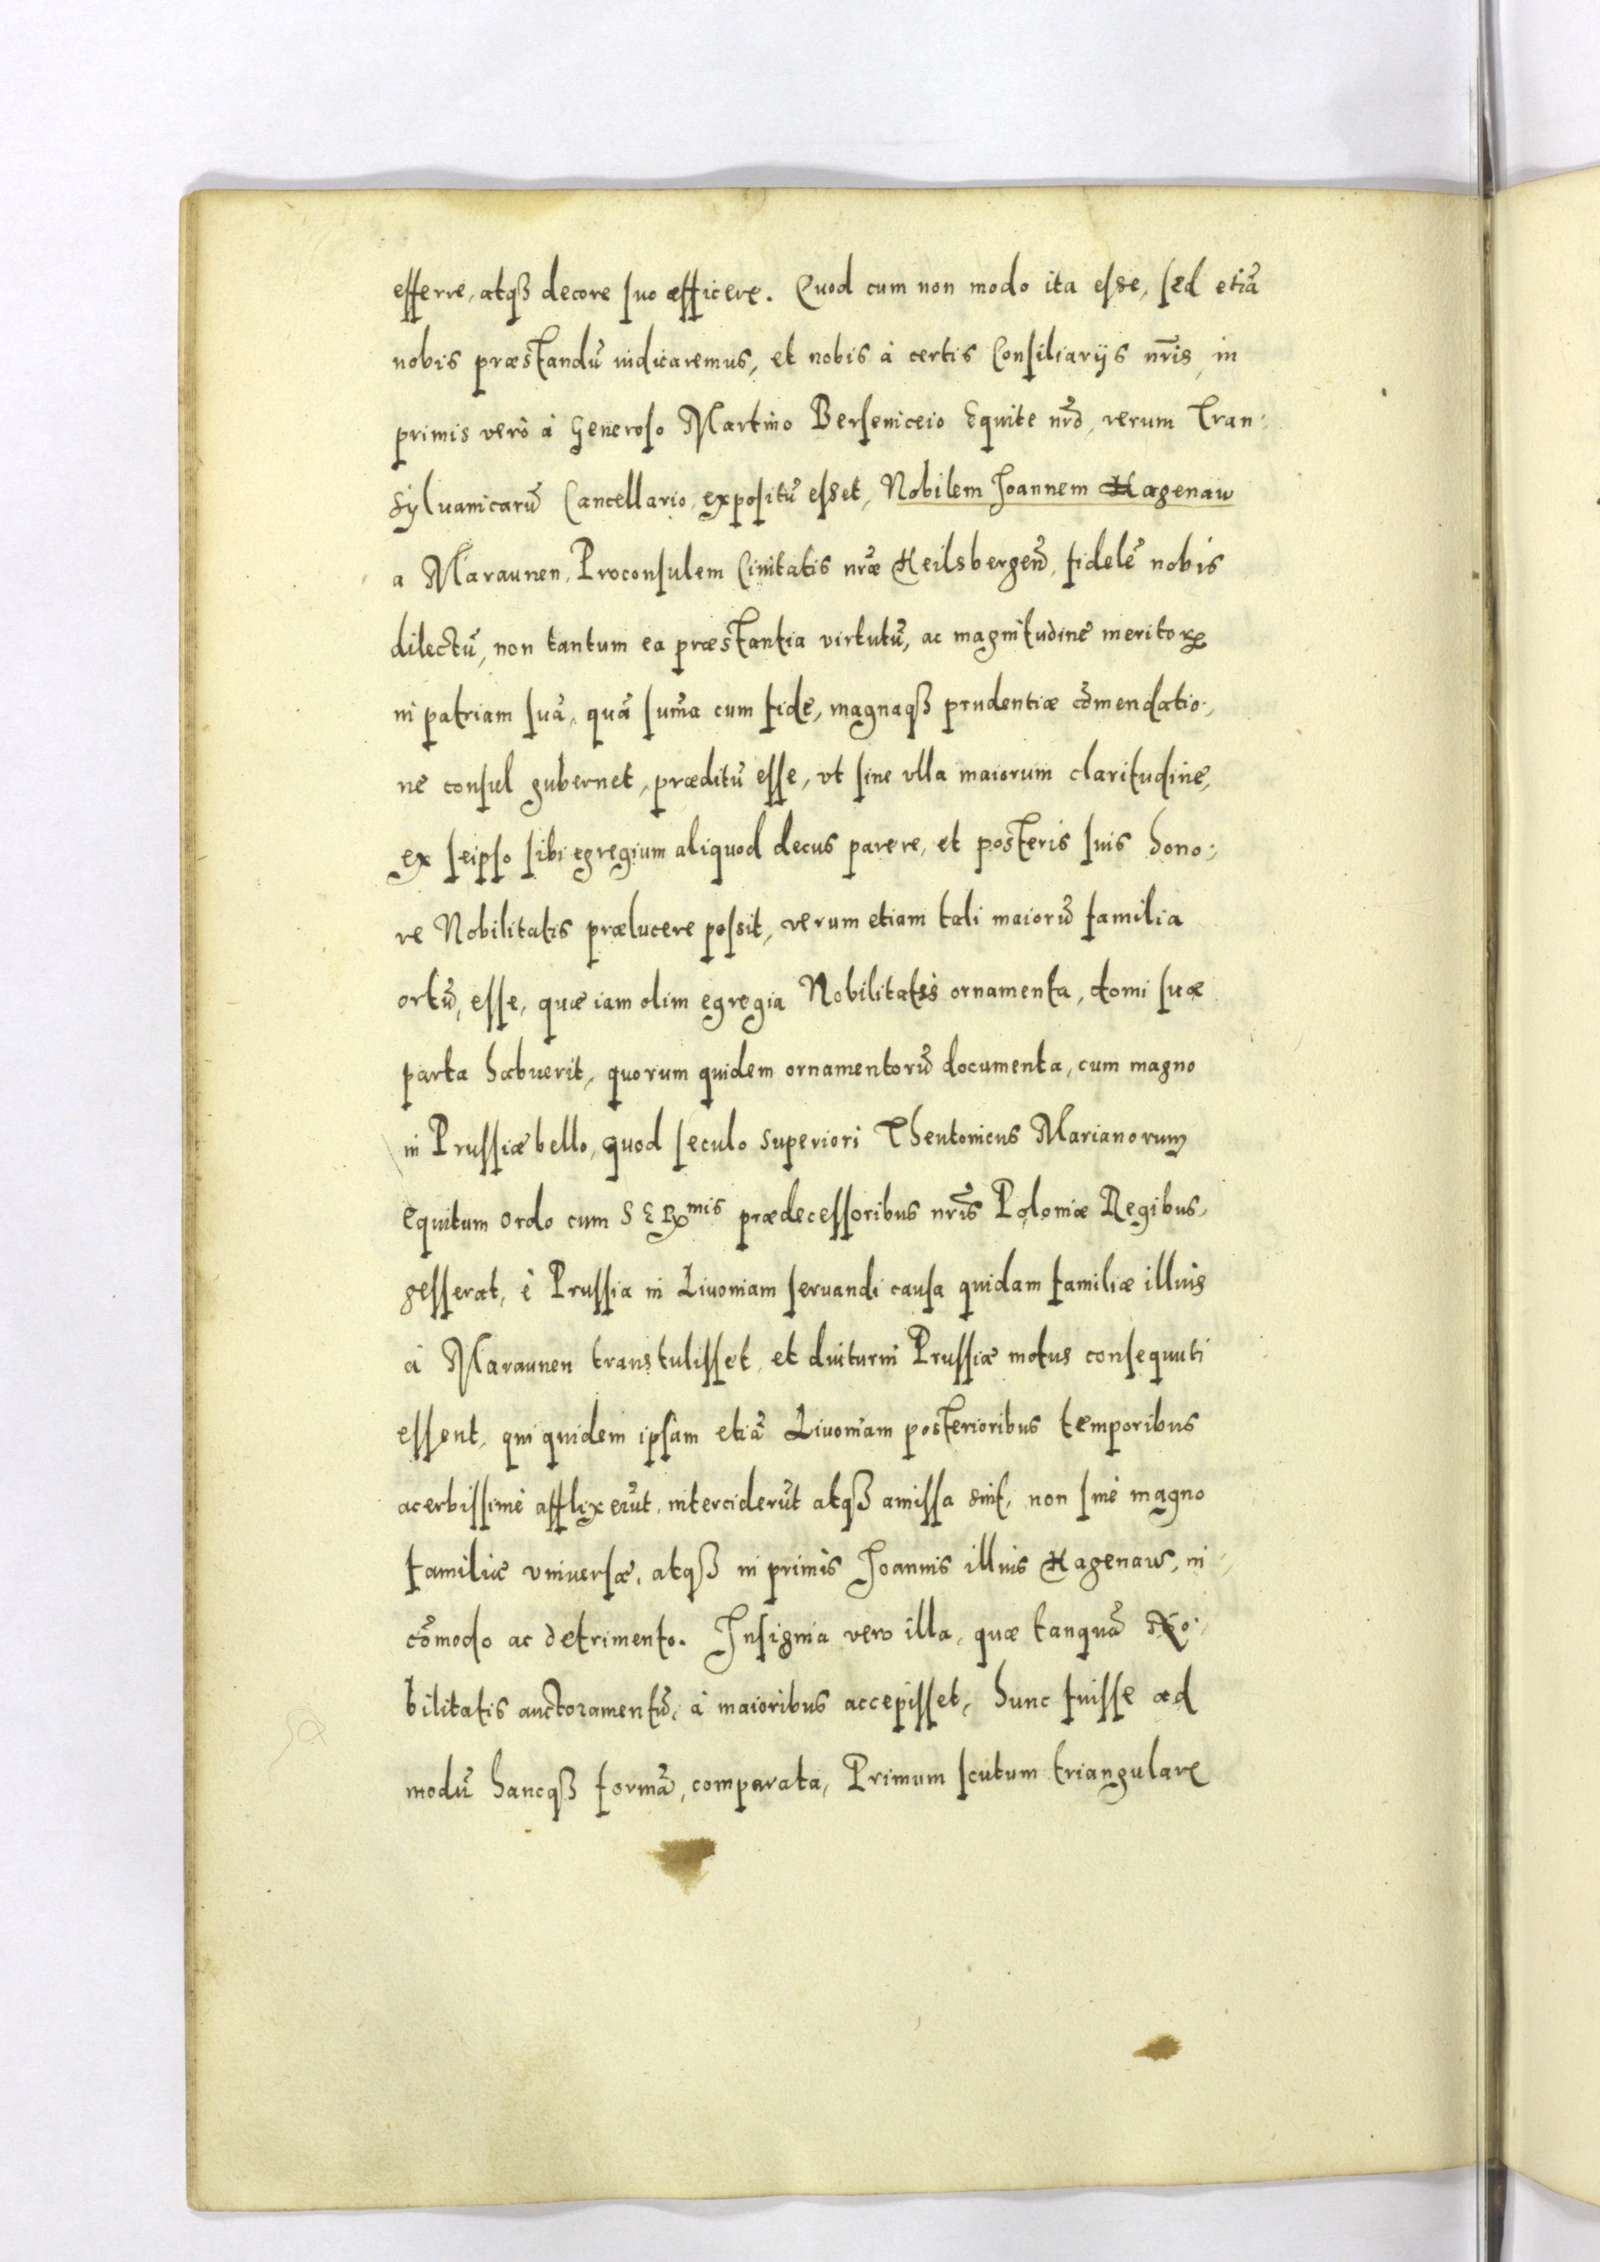 efferre, atqȝ decore suo afficere. Quod cum non modo ita esse, sed etiã
nobis præstandũ iudicaremus, et nobis à certis Consiliarijs nr̃is, in
primis verò à Generoso Martino Berseniceio Equite nr̃o, rerum Tran:
sylvanicarũ Cancellario, expositũ esset, Nobilem Joannem Hagenaw
a Maraunen, Proconsulem Ciuitatis nr̃æ Heilsbergeñ, fidelẽ nobis
dilectũ, non tantum ea præstantia virtutũ, ac magnitudine meritoꝝ
in patriam suã, quã sum̃a cum fide, magnaqȝ prudentiæ com̃endatio:,
ne consul gubernet, præditũ esse, vt sine vlla maiorum claritudine,
ex seipso sibi egregium aliquod decus parere, et posteris suis hono:,
re Nobilitatis prælucere possit, verum etiam tali maiorũ familia
ortũ, esse, quæ iam olim egregia Nobilitatis ornamenta, domi suæ
parta habuerit, quorum quidem ornamentorũ documenta, cum magno
in Prussiæ bello, quod seculo superiori Theutonicus Marianorum
equitum ordo cum SERmis prædecessoribus nr̃is Poloniæ Regibus,
gesserat, è Prussia in Liuoniam seruandi causa quidam familiæ illius
à Maraunen transtulisset, et diuturni Prussiæ motus consequuti
essent, qui quidem ipsam etiã Liuoniam posterioribus temporibus
acerbissimè afflixerũt, interciderũt atqȝ amissa sint, non sine magno
familiæ vniuersæ, atqȝ in primis Joannis illius Hagenaw, in:,
com̃odo ac detrimento. Insignia vero illa, quæ tanquã No:
bilitatis auctoramentũ, à maioribus accepisset, hunc fuisse ad
modũ hancqȝ formã, comparata, Primum scutum triangulare